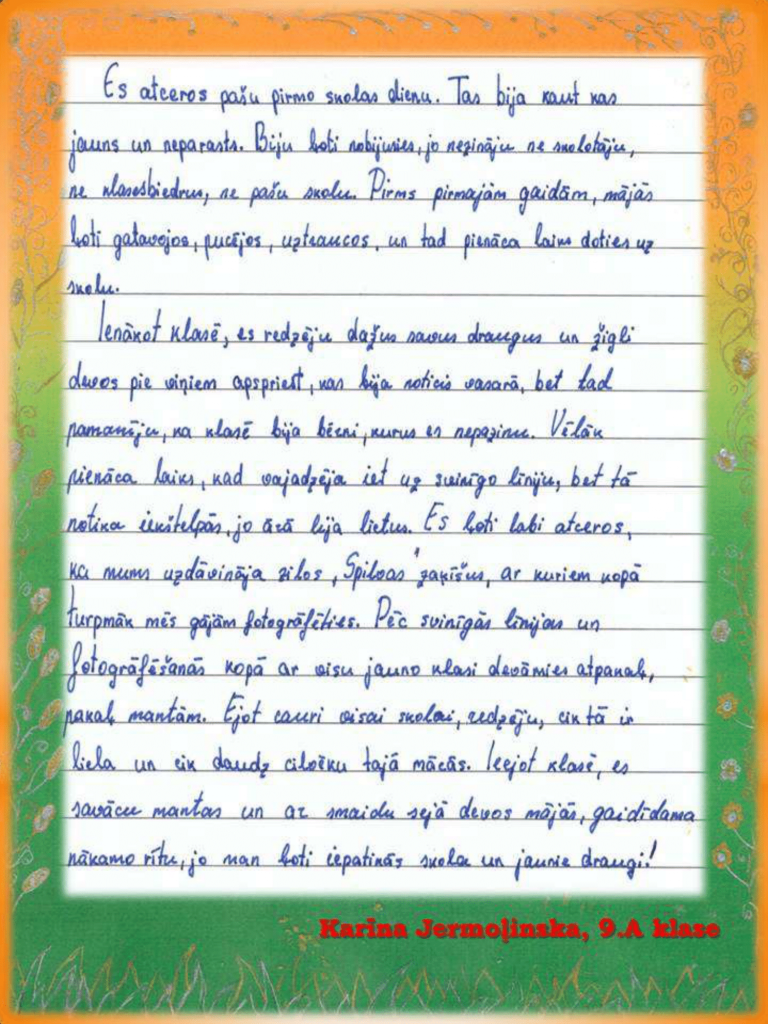 Es atceros pašu pirmo skolas dienu. Tas bija kaut kas
jauns un neparasts. Biju ļoti nobijusies, jo nezināju ne skolotāju,
ne klasesbiedrus, ne pašu skolu. Pirms pirmajām gaidām, mājās
ļoti gatavojos, pucējos, uztraucos, un tad pienāca laiks doties uz
skolu.
Ienākot klasē, es redzēju dažus savus draugus un žigli
devos pie viņiem apspriest, kas bija noticis vasarā, bet tad
pamanīju, ka klasē bija bērni, kurus es nepazinu. Vēlāk
pienāca laiks, kad vajadzēja iet uz svinīgo līniju, bet tā
notika iekštelpās, jo ārā lija lietus. Es ļoti labi atceros,
ka mums uzdāvināja zilos „Spilvas" zaķīšus, ar kuriem kopā
turpmāk mēs gājām fotografēties. Pēc svinīgās līnijas un
fotogrāfēšanās kopā ar visu jauno klasi devāmies atpakaļ,
pakaļ mantām. Ejot cauri visai skolai, redzēju, cik tā ir
liela un cik daudz cilvēku tajā mācās. Ieejot klasē, es
savācu mantas un ar smaidu sejā devos mājās, gaidīdama
nākamo rītu, jo man ļoti iepatikās skola un jaunie draugi!
Karina Jermoļinska, 9.A klase